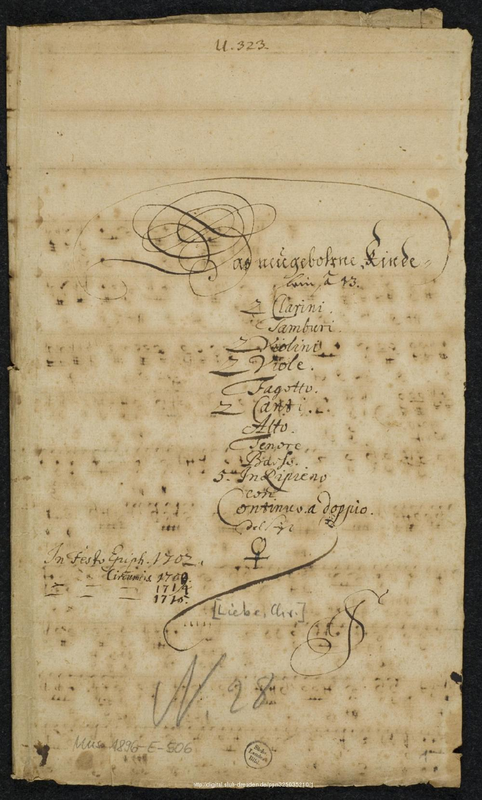 U. 323.
Das neügebohrne Kinde-
lein à 13.
2 Clarini.
Tamburi.
2 Violini
2 Viole.
Fagotto.
2 Canti.
Alto.
Tenore,
Basso.
5. In Ripieno
con
Continuo. a doppio.
del Sign
In Festo Epiph. 1702.
Circumcis 1709.
1714
1715.
[Liebe, Chr.]
N. 28
Mus. 1896-E-506